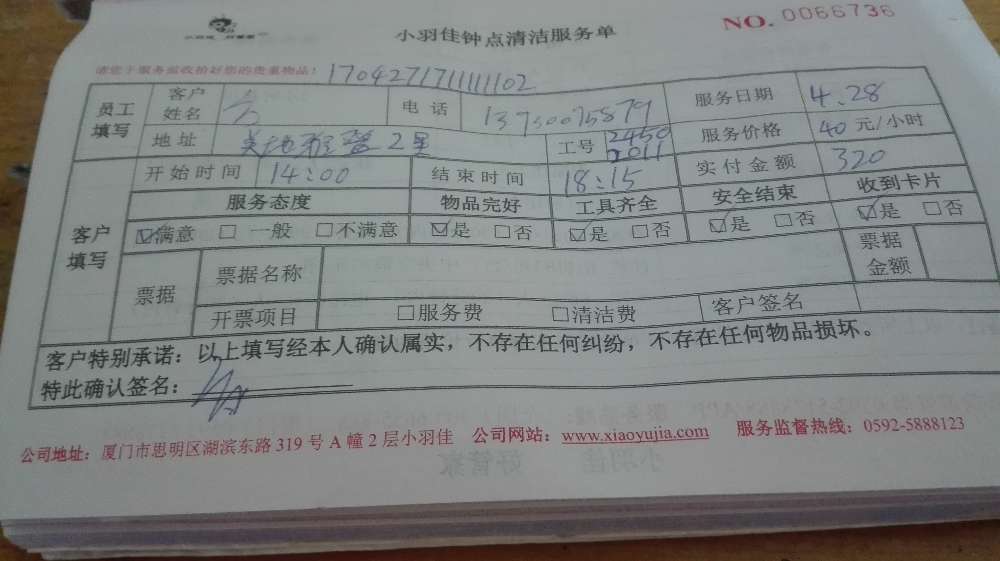 NO. 0066736
小羽佳钟点清洁服务单
请您于服务前收拾好您的贵重物品! 170427171111102
员工填写 客户姓名 电话 13730075879 服务日期 4.28
地址 2 工号 2450 2011 服务价格 40 元/小时
开始时间 14:00 结束时间 18:15 实付金额 320
客户填写 服务态度 物品完好 工具齐全 安全结束 收到卡片
☑满意 □ 一般 □不满意 ☑是 □否 ☑是 □否 ☑是 □否 ☑是 □否
票据 票据名称 票据金额
开票项目 □服务费 □清洁费 客户签名
客户特别承诺：以上填写经本人确认属实，不存在任何纠纷，不存在任何物品损坏。
特此确认签名：
公司地址：厦门市思明区湖滨东路 319 号 A 幢 2 层小羽佳 公司网站：www.xiaoyujia.com 服务监督热线：0592-5888123